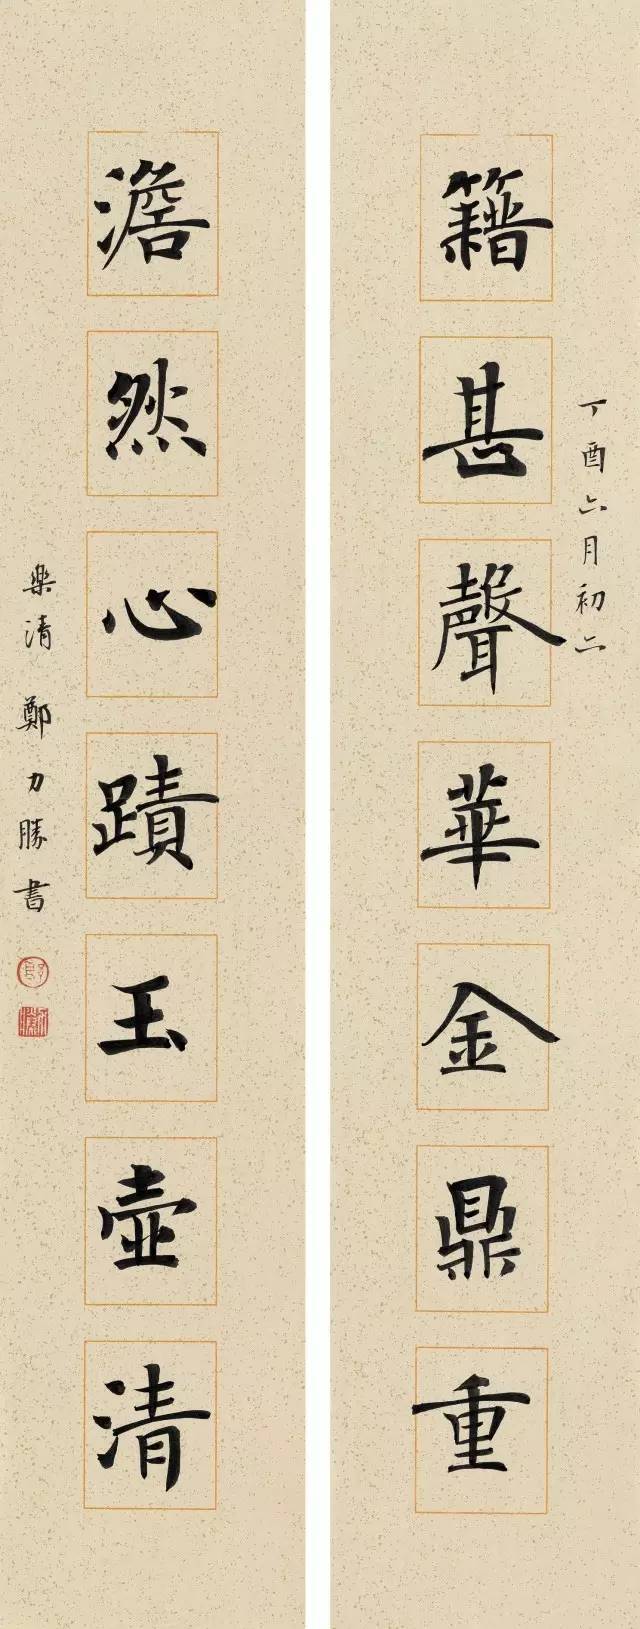 丁酉六月初二
籍甚聲華金鼎重
澹然心蹟玉壺清
樂清 鄭力勝書